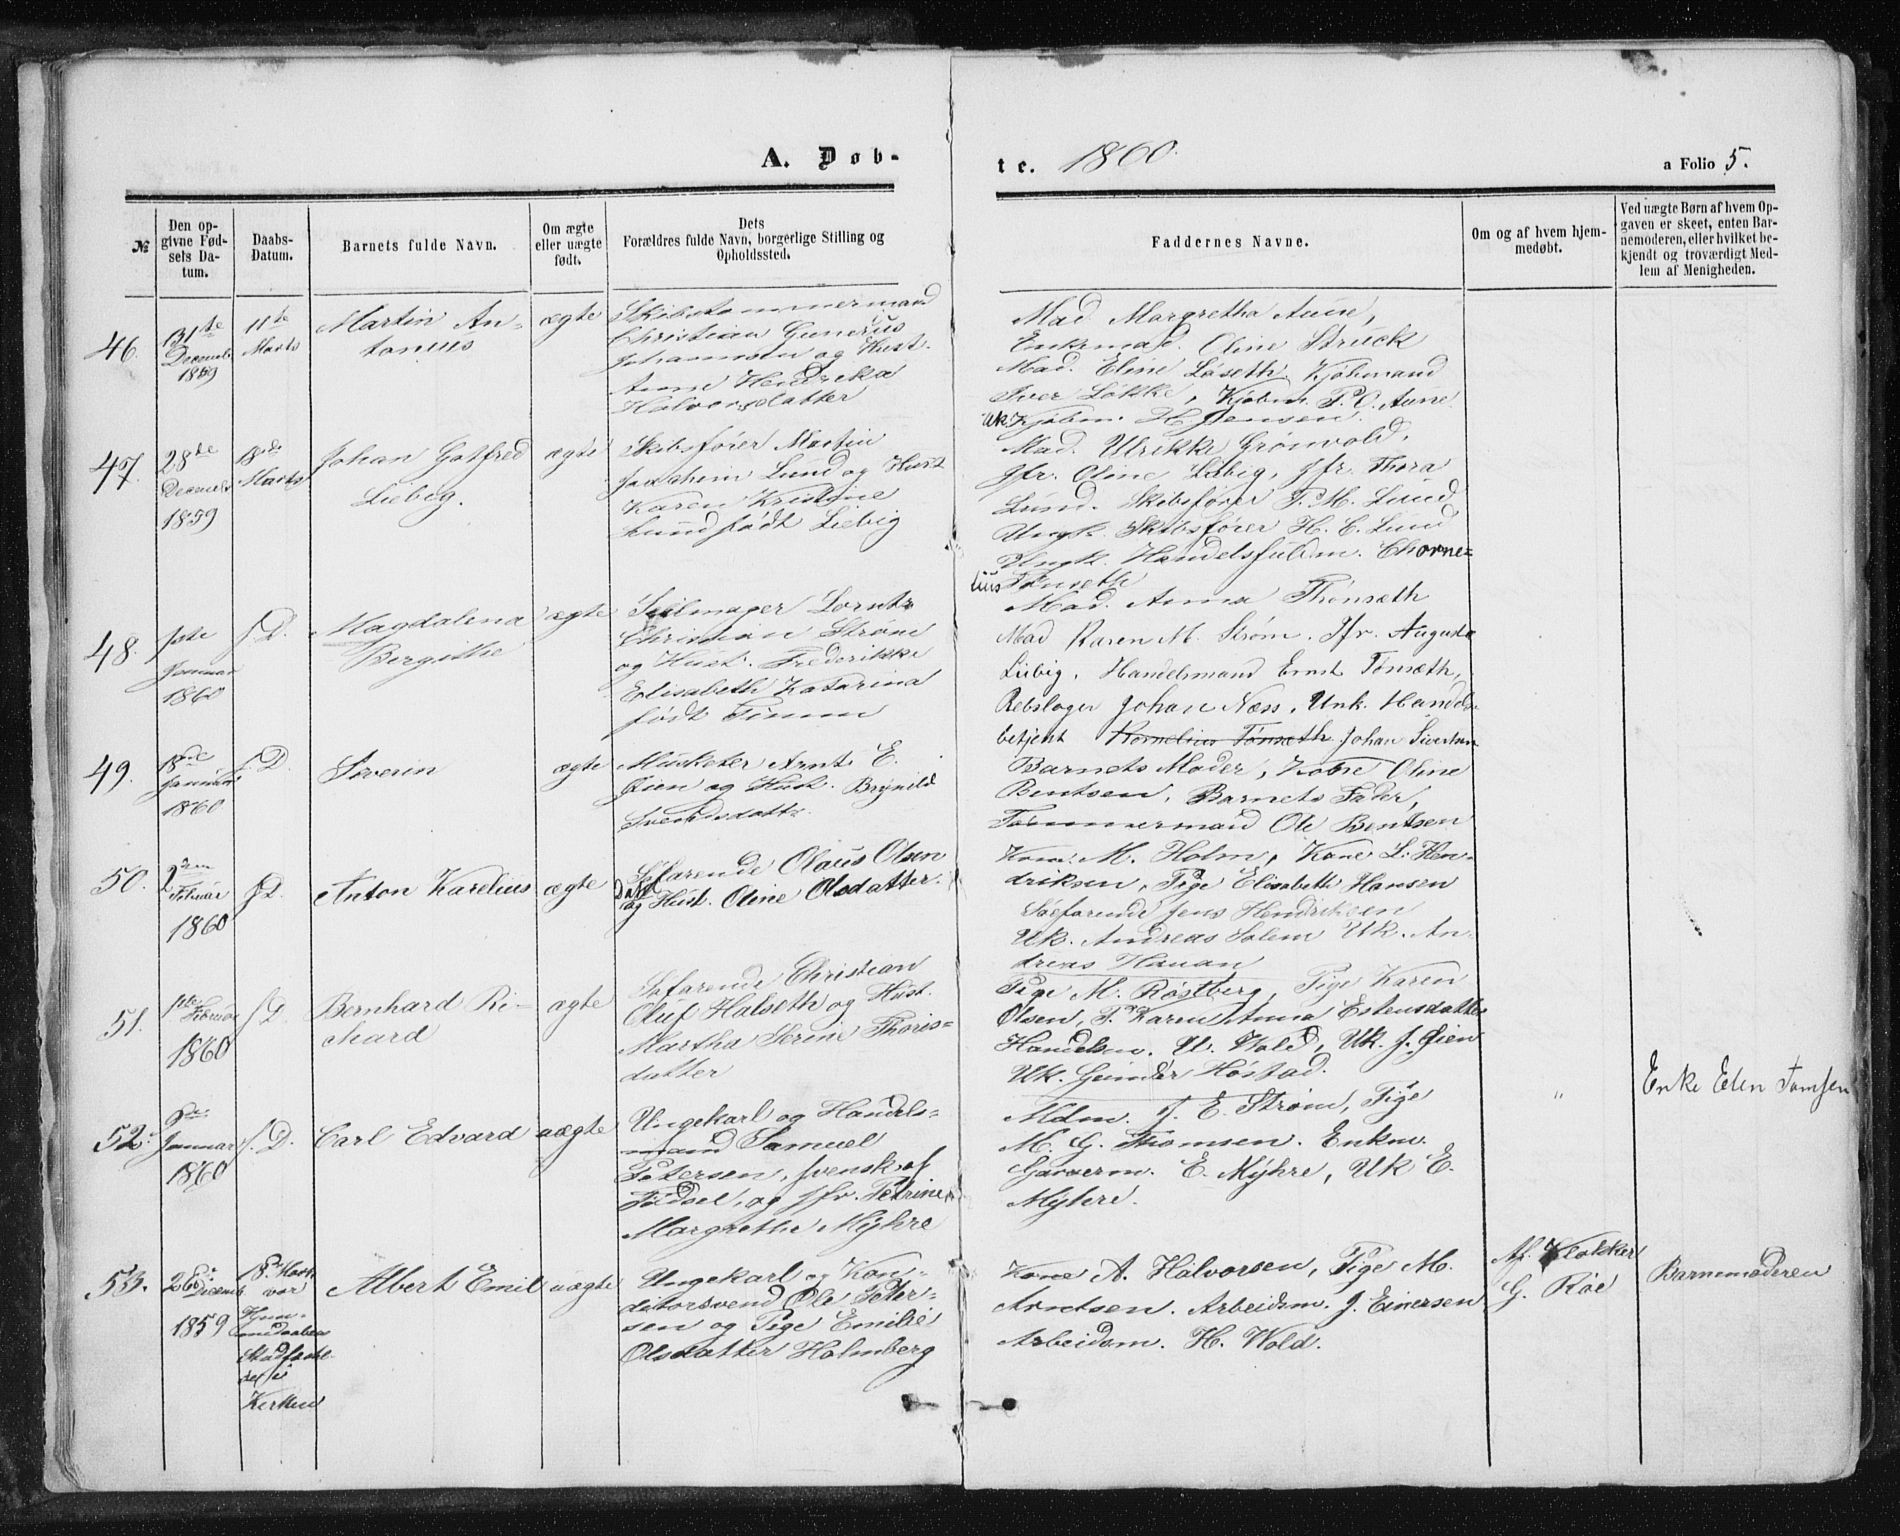 A. Døb-
te. 1860.
a Folio 5.
№
Den op-
givne Fød-
sels Da-
tum.
Daabs-
Datum.
Barnets fulde Navn.
Om ægte
eller uægte
født.
Dets
Forældres fulde Navn, borgerlige Stilling og
Opholdssted.
Faddernes Navne.
Om og af hvem hjem-
medøbt.
Ved uægte Børn af hvem Op-
gaven er skeet, enten Bar-
nemoderen, eller hvilket be-
kjendt og troværdigt Med-
lem af Menigheden.
46.
31te
Decemb
1859
11te
Marts
Martin An-
tonius
ægte
Skibstømmermand
Christian Gunerius
Johannsen og Hust.
Anne Hendreka
Halvorsdatter
Mad Margretha Aune,
Enkemad. Oline Struck
Mad. Eline Løseth, Kjøbmand
Iver Løkke, Kjøbm. P. O. Aune
Uk. Kjøbm. H. Jensen.
47.
28de
Decemb
1859
18de
Marts
Johan Gotfred
Liebig.
ægte
Skibsfører Martin
Joachim Lund og Hust
Karen Kristine
Lund født Liebig
Mad. Ulrikke Grønvold,
Jfr. Oline Liebig, Jfr. Thora
Lund. Skibsfører P. M. Lund
Ungk. Skibsfører H. C. Lund
Ungk. Handelsfuldm. Chorne-
lius Tønseth
48.
1ste
Januar
1860
s. D.
Magdalena
Bergithe
ægte
Seilmager Lorntz
Christian Strøm
og Hust. Frederikke
Elisabeth Katarina
født Timm
Mad. Anna Thønsæth
Mad Karen M. Strøm. Jfr. Augusta
Liebig, Handelsmand Ernst Tønsæth,
Rebslager Johan Næss, Unk. Handels-
betjent Kornelius Tønseth Johan Sivertsen
49.
18de
Januar
1860
s. D.
Søverin
ægte
Musketer Arnt E.
Øien og Hust. Brynild
Svendsdatt.
Barnets Moder, Kone Oline
Bentsen, Barnets Fader,
Tømmermand Ole Bentsen
50.
2den
Februar
1860
s. D.
Anton Karelius
ægte
Søfarende Olaus Olsen
og Hust. Oline Olsdatter.
Kone M. Holm, Kone L. Hen-
driksen, Pige Elisabeth Hansen
Søefarende Jens Hendriksen
Uk. Andreas Solem Uk. An-
dreas Hauan
51.
1ste Februar
1860
s. D.
Bernhard Ri-
chard
ægte
Søfarende Christian
Oluf Halseth og Hust.
Martha Serine Thoris-
datter
Pige M. Røstberg, Pige Karen
Olsen, P. Karen Anna Estensdatter
Handelsm. U. Wold, Uk. J. Øien
Uk. Gunder Høstad.
52.
Januar
1860
s. D.
Carl Edvard
uægte
Ungekarl og Handels-
mand Samuel
Petersen, svensk af
Fødsel, og Jfr. Petrine
Margrethe Myhre
Mdm. J. E. Strøm, Pige
M. G. Thomsen. Enkm.
Garverm. E. Myhre, Uk E.
Myhre.
"
Enke Elen Tomsen
53.
26de
Decemb
1859
18. Marts
var
Hjem-
medaaben
Stadfæstet
i
Kirken
Albert Emil
uægte
Ungekarl og Kon-
ditorsvend Ole Peter-
sen og Pige Emilie
Olsdatter Holmberg
Kone A. Halvorsen, Pige M.
Arntsen. Arbeidsm. J. Einersen
Arbeidsm. H. Wold.
Af Klokker
G. Røe
Barnemoderen